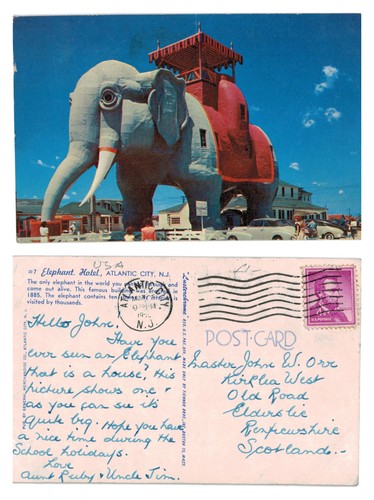 USA
#7 Elephant Hotel, ATLANTIC CITY, N.J.
The only elephant in the world you
and come out alive. This famous bu
1885. The elephant contains ten
visited by thousands.
ATLANTIC CITY
N.J.
POST-CARD
U.S. POSTAGE
Hello John,
Have you
ever sun an Elephant
that is a house, His
picture shows one &
as you can see it's
quite big. Hope you have
a nice time during the
School holidays.
Love
Aunt Ruby & Uncle Jim.
Master John W. Orr
Kirklea West
Old Road
Elderslie
Renfrewshire
Scotland.